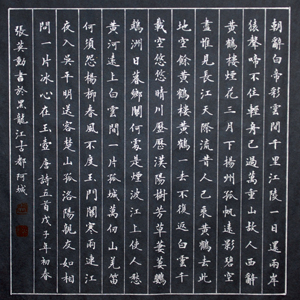 朝辭白帝彩雲間千里江陵一日還兩岸
猿聲啼不住輕舟已過萬重山故人西辭
黃鶴樓煙花三月下揚州孤帆遠影碧空
盡惟見長江天際流昔人已乘黃鶴去此
地空餘黃鶴樓黃鶴一去不復返白雲千
載空悠悠晴川歷歷漢陽樹芳草萋萋鸚
鵡洲日暮鄉關何處是煙波江上使人愁
黃河遠上白雲間一片孤城萬仞山羌笛
何須怨楊柳春風不度玉門關寒雨連江
夜入吳平明送客楚山孤洛陽親友如相
問一片冰心在玉壺唐詩五首戊子年初春
張英勳書於黑龍江古都阿城